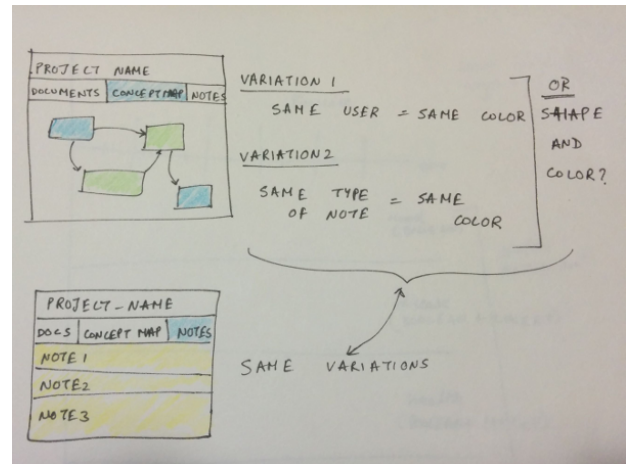 PROJECT NAME
DOCUMENTS CONCEPTMAP NOTES
VARIATION 1
SAME USER = SAME COLOR
VARIATION 2
SAME TYPE = SAME
OF NOTE COLOR
OR
SHAPE
AND
COLOR?
PROJECT-NAME
DOCS CONCEPT MAP NOTES
NOTE 1
NOTE2
NOTE3
SAME VARIATIONS